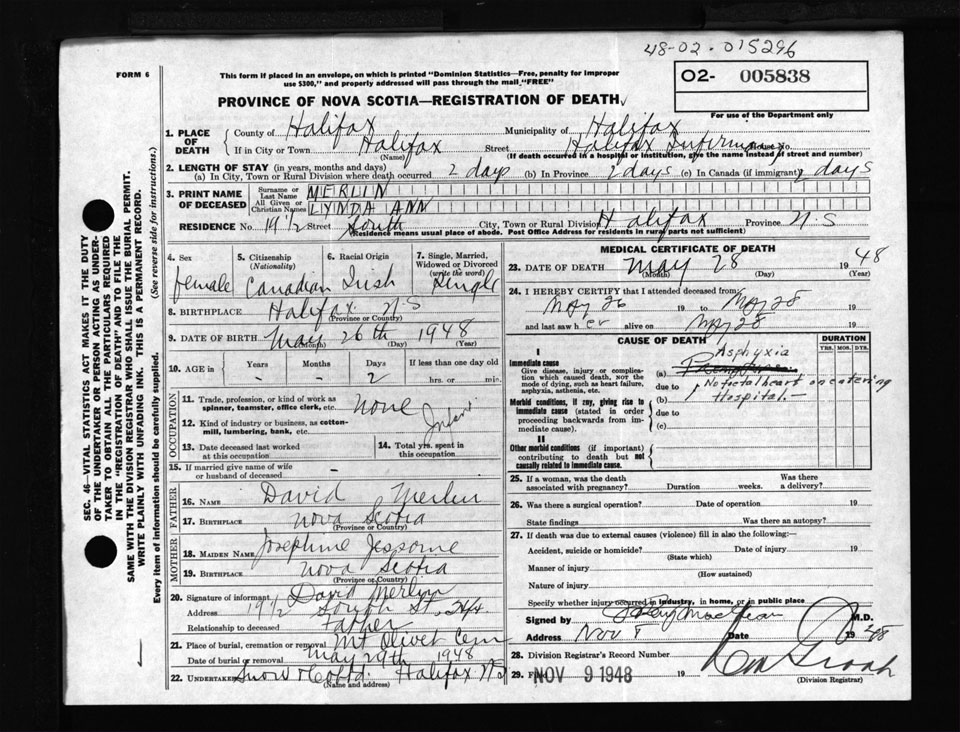 48-02-015296
FORM 6
This form if placed in an envelope, on which is printed "Dominion Statistics—Free, penalty for improper
use $300," and properly addressed will pass through the mail "FREE"
02- 005838
For use of the Department only
PROVINCE OF NOVA SCOTIA—REGISTRATION OF DEATH
1. PLACE OF DEATH
County of Halifax Municipality of Halifax
If in City or Town Halifax (Name) Street Halifax Infirmary House No.
(If death occurred in a hospital or institution, give the name instead of street and number)
2. LENGTH OF STAY (in years, months and days)
(a) In City, Town or Rural Division where death occurred 2 days (b) In Province 2 days (c) In Canada (if immigrant) 2 days
3. PRINT NAME OF DECEASED
Surname or Last Name MERLIN
All Given or Christian Names LYNDA ANN
RESIDENCE No. 19 1/2 Street South City, Town or Rural Division Halifax Province N.S
(Residence means usual place of abode. Post Office Address for residents in rural parts not sufficient)
4. Sex female
5. Citizenship (Nationality) Canadian
6. Racial Origin Irish
7. Single, Married, Widowed or Divorced (write the word) Single
8. BIRTHPLACE Halifax N.S
(Province or Country)
9. DATE OF BIRTH May 26th 1948
(Month) (Day) (Year)
10. AGE in Years - Months - Days 2 If less than one day old hrs. or min.
OCCUPATION
11. Trade, profession, or kind of work as spinner, teamster, office clerk, etc. none
12. Kind of industry or business, as cotton-mill, lumbering, bank, etc. Infant
13. Date deceased last worked at this occupation
14. Total yrs. spent in this occupation
15. If married give name of wife or husband of deceased -
FATHER
16. Name David Merlin
17. Birthplace Nova Scotia
(Province or Country)
MOTHER
18. Maiden Name Josephine Jessome
19. Birthplace Nova Scotia
(Province or Country)
20. Signature of informant David Merlin
Address 19 1/2 South St. Hfx.
Relationship to deceased Father
21. Place of burial, cremation or removal Mt Olivet Cem
Date of burial or removal May 29th 1948
22. Undertaker Snow & Co Ltd. Halifax N.S
(Name and address)
MEDICAL CERTIFICATE OF DEATH
23. DATE OF DEATH May 28 1948
(Month) (Day) (Year)
24. I HEREBY CERTIFY that I attended deceased from:
May 26 19 to May 28 19
and last saw her alive on May 28 19
CAUSE OF DEATH
DURATION
YRS. MOS. DYS.
I
Immediate cause
Give disease, injury or complication which caused death, not the mode of dying, such as heart failure, asphyxia, asthenia, etc.
(a) Asphyxia
due to No foetal heart on entering
Morbid conditions, if any, giving rise to immediate cause (stated in order proceeding backwards from immediate cause).
(b) Hospital.
due to
(c)
II
Other morbid conditions (if important) contributing to death but not causally related to immediate cause.
25. If a woman, was the death associated with pregnancy? Duration weeks. Was there a delivery?
26. Was there a surgical operation? Date of operation 19
State findings Was there an autopsy?
27. If death was due to external causes (violence) fill in also the following:
Accident, suicide or homicide? Date of injury 19
(State which)
Manner of injury
(How sustained)
Nature of injury
Specify whether injury occurred in industry, in home, or in public place
Signed by M.D.
Address Nov 1 Date 1948
28. Division Registrar's Record Number
29. Filed NOV 9 1948 19
(Division Registrar)
SEC. 46—VITAL STATISTICS ACT MAKES IT THE DUTY
OF THE UNDERTAKER OR PERSON ACTING AS UNDER-
TAKER TO OBTAIN ALL THE PARTICULARS REQUIRED
IN THE "REGISTRATION OF DEATH" AND TO FILE THE
SAME WITH THE DIVISION REGISTRAR WHO SHALL ISSUE THE BURIAL PERMIT.
WRITE PLAINLY WITH UNFADING INK. THIS IS A PERMANENT RECORD.
Every item of information should be carefully supplied. (See reverse side for instructions.)